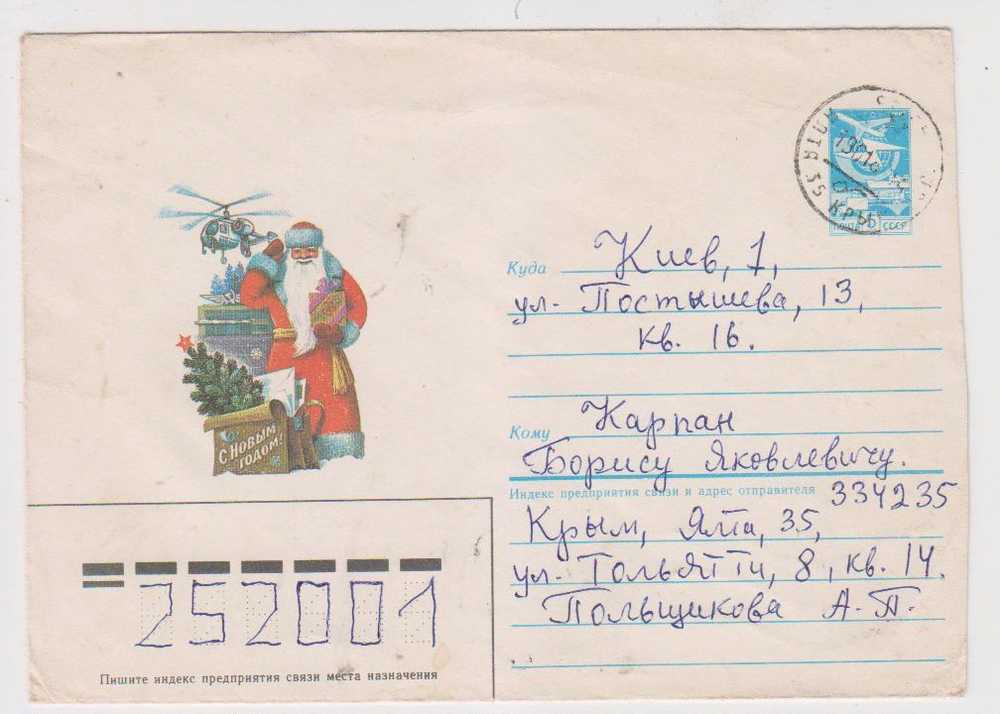 ПОЧТА СССР
Куда Киев, 1,
ул. Постышева, 13,
кв. 16.
Кому Карпан
Борису Яковлевичу.
Индекс предприятия связи и адрес отправителя 334235
Крым, Ялта, 35,
ул. Тольятти, 8, кв. 14.
Польщикова А.П.
С НОВЫМ
ГОДОМ!
252001
Пишите индекс предприятия связи места назначения